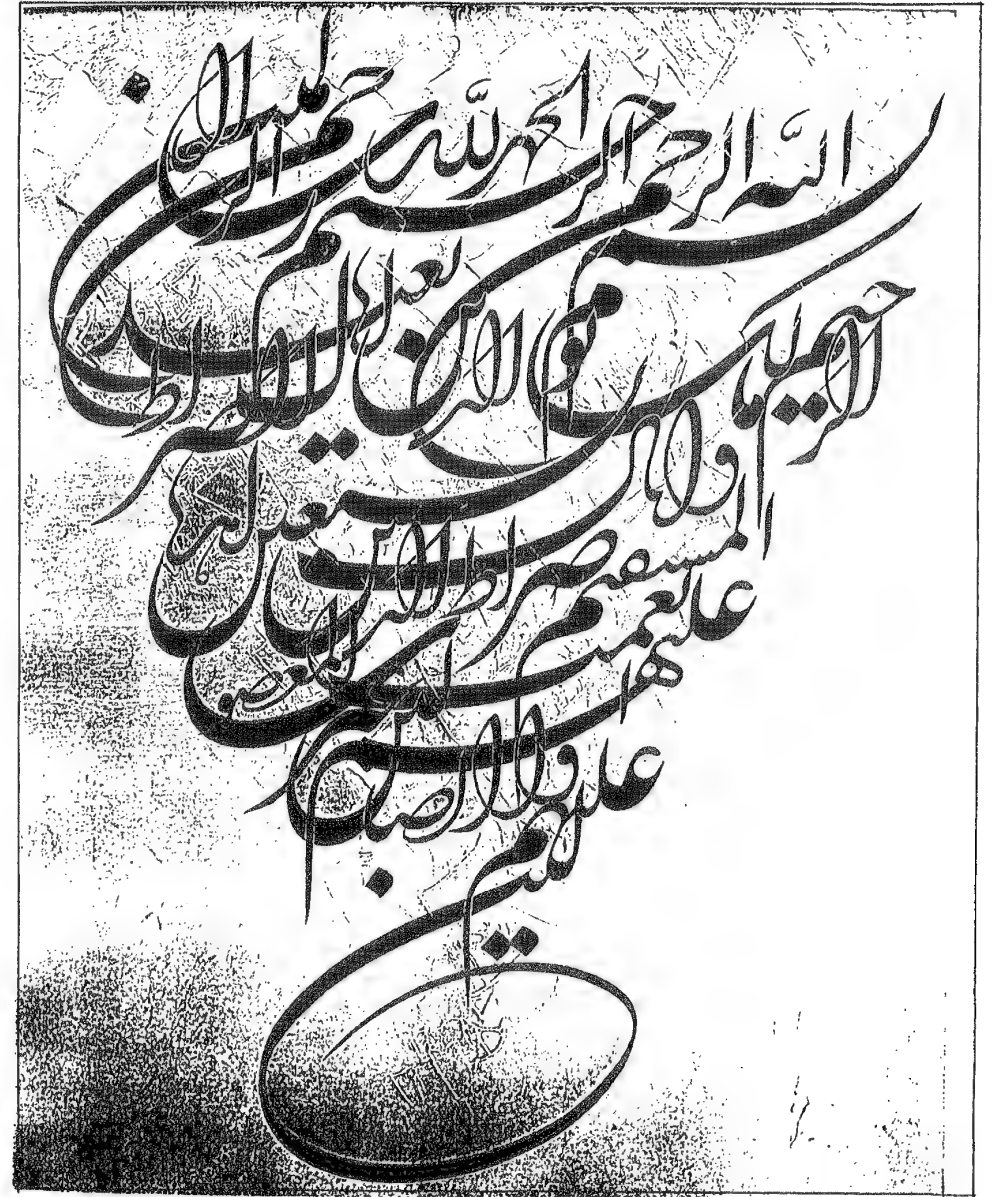 بسم الله الرحمن الرحيم الحمد لله رب العالمين
الرحمن الرحيم مالك يوم الدين إياك نعبد
وإياك نستعين اهدنا الصراط
المستقيم صراط الذين
أنعمت عليهم غير المغضوب
عليهم ولا الضالين